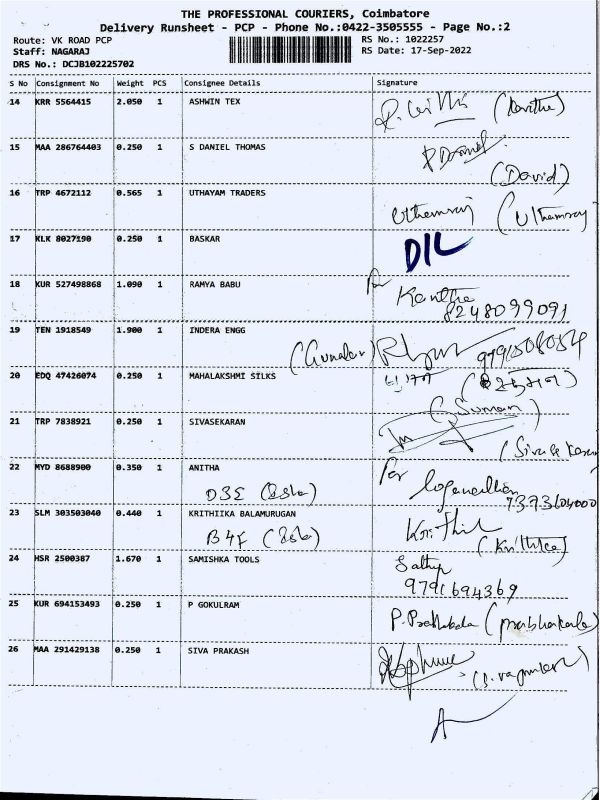 THE PROFESSIONAL COURIERS, Coimbatore
Delivery Runsheet - PCP - Phone No.:0422-3505555 - Page No.:2
Route: VK ROAD PCP RS No.: 1022257
Staff: NAGARAJ RS Date: 17-Sep-2022
DRS No.: DCJB102225702
S No Consignment No Weight PCS Consignee Details Signature
14 KRR 5564415 2.050 1 ASHWIN TEX
15 MAA 286764403 0.250 1 S DANIEL THOMAS
(David)
16 TRP 4672112 0.565 1 UTHAYAM TRADERS
Uthamraj (Uthamraj
17 KLK 8027190 0.250 1 BASKAR DIL
18 KUR 527498868 1.090 1 RAMYA BABU for
Kanthe
8248099091
19 TEN 1918549 1.900 1 INDERA ENGG
20 EDQ 47426074 0.250 1 MAHALAKSHMI SILKS
(Suman)
21 TRP 7838921 0.250 1 SIVASEKARAN
22 MYD 8688900 0.350 1 ANITHA For
D3E 7373604000
23 SLM 303503040 0.440 1 KRITHIIKA BALAMURUGAN
B4F
24 HSR 2500387 1.670 1 SAMISHKA TOOLS
9791694369
25 KUR 694153493 0.250 1 P GOKULRAM
26 MAA 291429138 0.250 1 SIVA PRAKASH